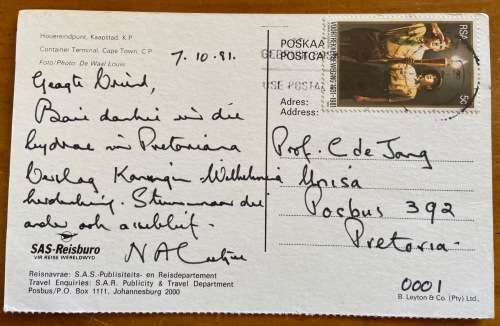 Houereindpunt, Kaapstad, K.P.
Container Terminal, Cape Town, C.P.
Foto/Photo: De Waal Louw
7.10.81.
Geagte Vriend,
Baie dankie vir die
bydrae in Pretoriana
Verslag Koningin Wilhelmina
herdenking. Stuur maar die
ander ook asseblief.
SAS-Reisburo
VIR REISE WÊRELDWYD
Reisnavrae: S.A.S.-Publisiteits- en Reisdepartement
Travel Enquiries: S.A.R. Publicity & Travel Department
Posbus/P.O. Box 1111, Johannesburg 2000
POSKAA
POSTCA
USE POSTAL
RSA
5c
Adres:
Address:
Prof. C de Jong
Unisa
Posbus 392
Pretoria.
0001
B. Leyton & Co. (Pty) Ltd.